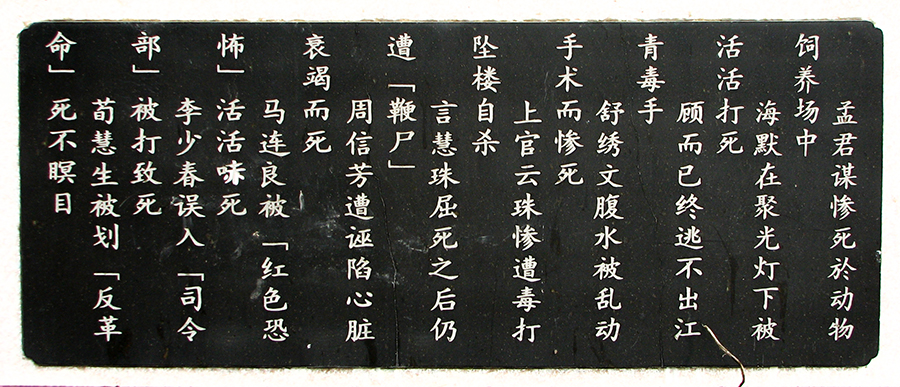 孟君谋惨死於动物
饲养场中
海默在聚光灯下被
活活打死
顾而已终逃不出江
青毒手
舒绣文腹水被乱动
手术而惨死
上官云珠惨遭毒打
坠楼自杀
言慧珠屈死之后仍
遭「鞭尸」
周信芳遭诬陷心脏
衰竭而死
马连良被「红色恐
怖」活活哧死
李少春误入「司令
部」被打致死
荀慧生被划「反革
命」死不瞑目